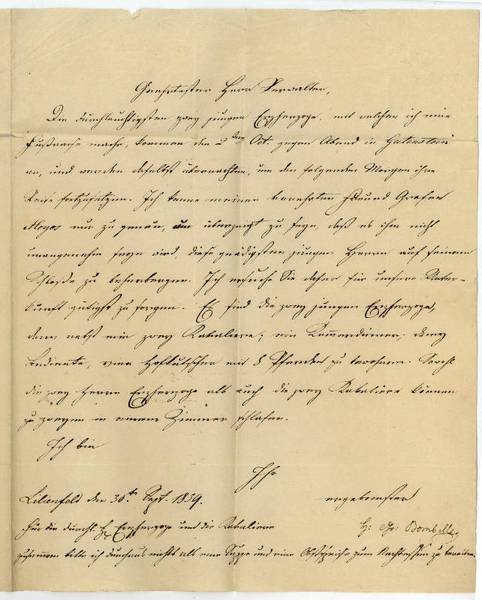 Geehrtester Herr Verwalter,
Die durchlauchtigsten zwey jungen Erzherzoge, mit welchen ich eine
Fußreise mache, kommen den 2ten Oct. gegen Abend in Gutenstein
an, und werden daselbst übernachten, um den folgenden Morgen ihre
Reise fortzusetzen. Ich kenne meinen verehrten Freund Grafen
Hoyos nur zu genau, um überzeugt zu seyn, daß es ihm nicht
unangenehm seyn wird, diese gnädigsten jungen Herren auf seinem
Schloße zu beherbergen. Ich ersuche Sie daher für unsere Unter-
kunft gütigst zu sorgen. Es sind die zwey jungen Erzherzoge,
dann nebst mir zwey Kavaliere; ein Kammerdiener;
Bediente, Hofkutscher mit 8 Pferden zu
die zwey Herren Erzherzoge als auch die zwey Kavaliere können
zu zweyen in einem Zimmer schlafen.
Ich bin
Ihr
Lilienfeld den 30ten Sept. ergebenster
Für die durchl. H. Erzherzoge und die Kavaliere H: Gr: Bombelles
zusammen bitte ich durchaus nichts als eine Suppe und eine zum Nachtessen zu bereiten.